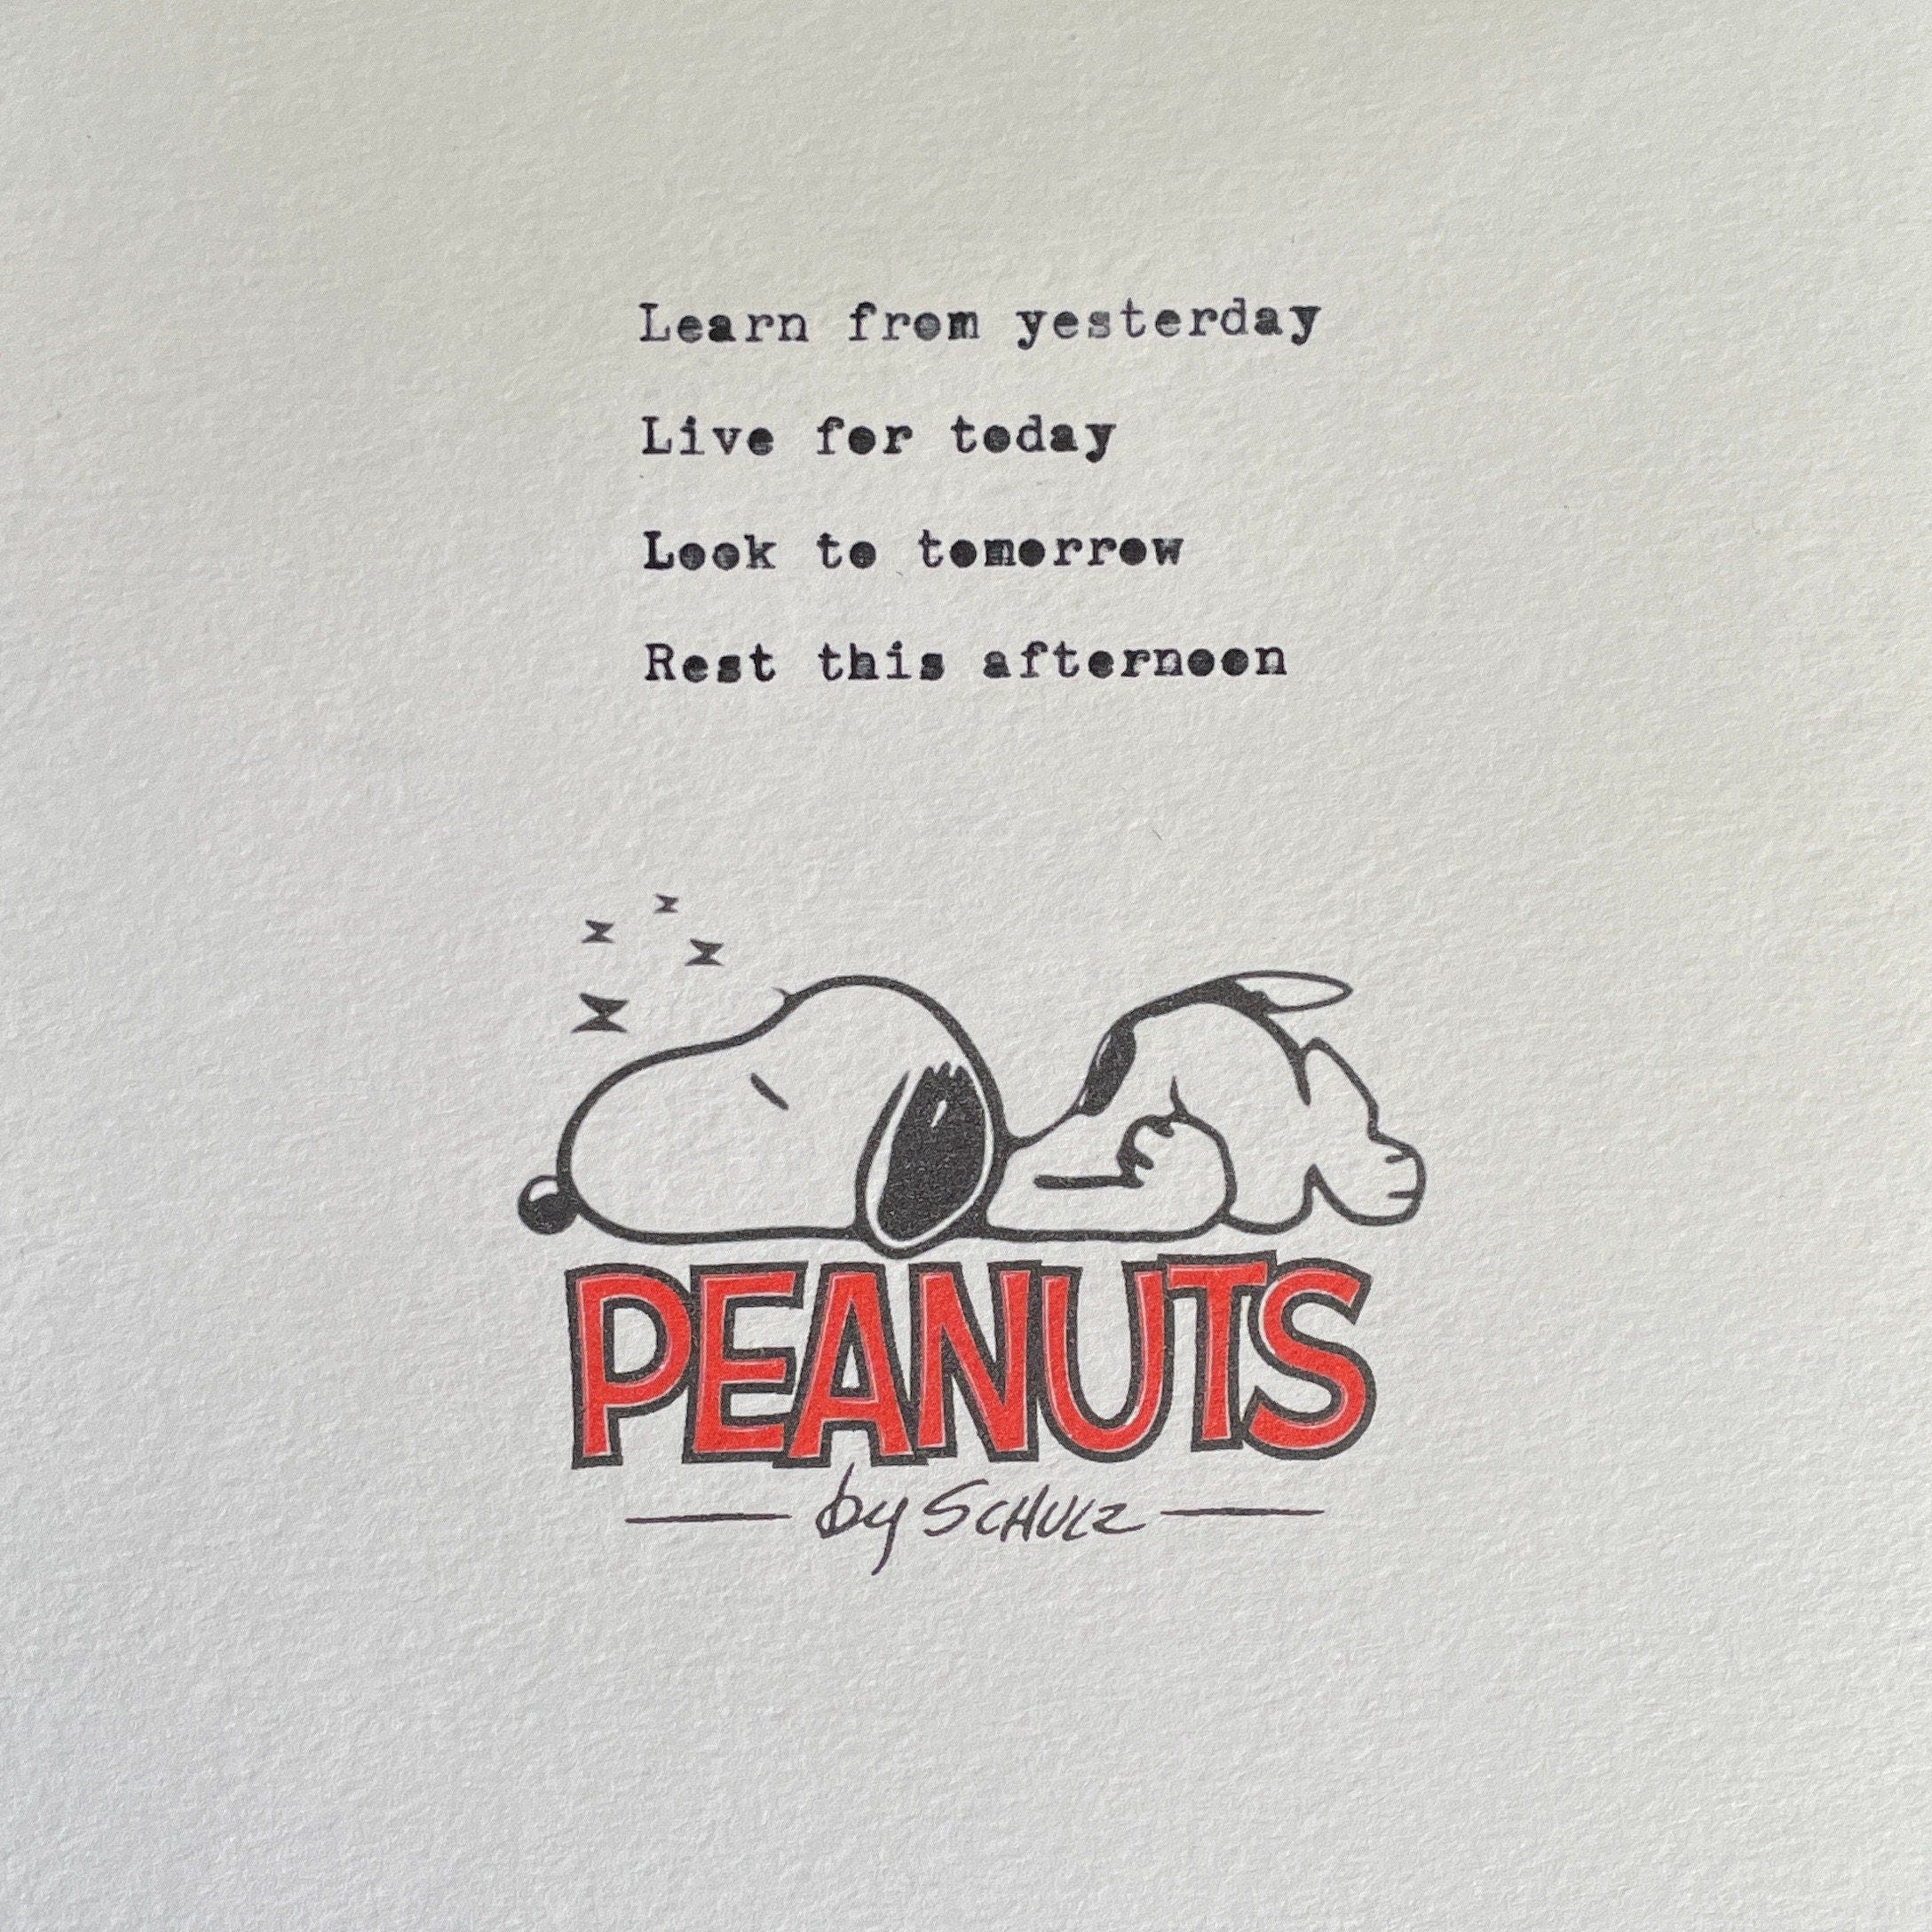 Learn from yesterday
Live for today
Look to tomorrow
Rest this afternoon
z
z
z
z
PEANUTS
by SCHULZ